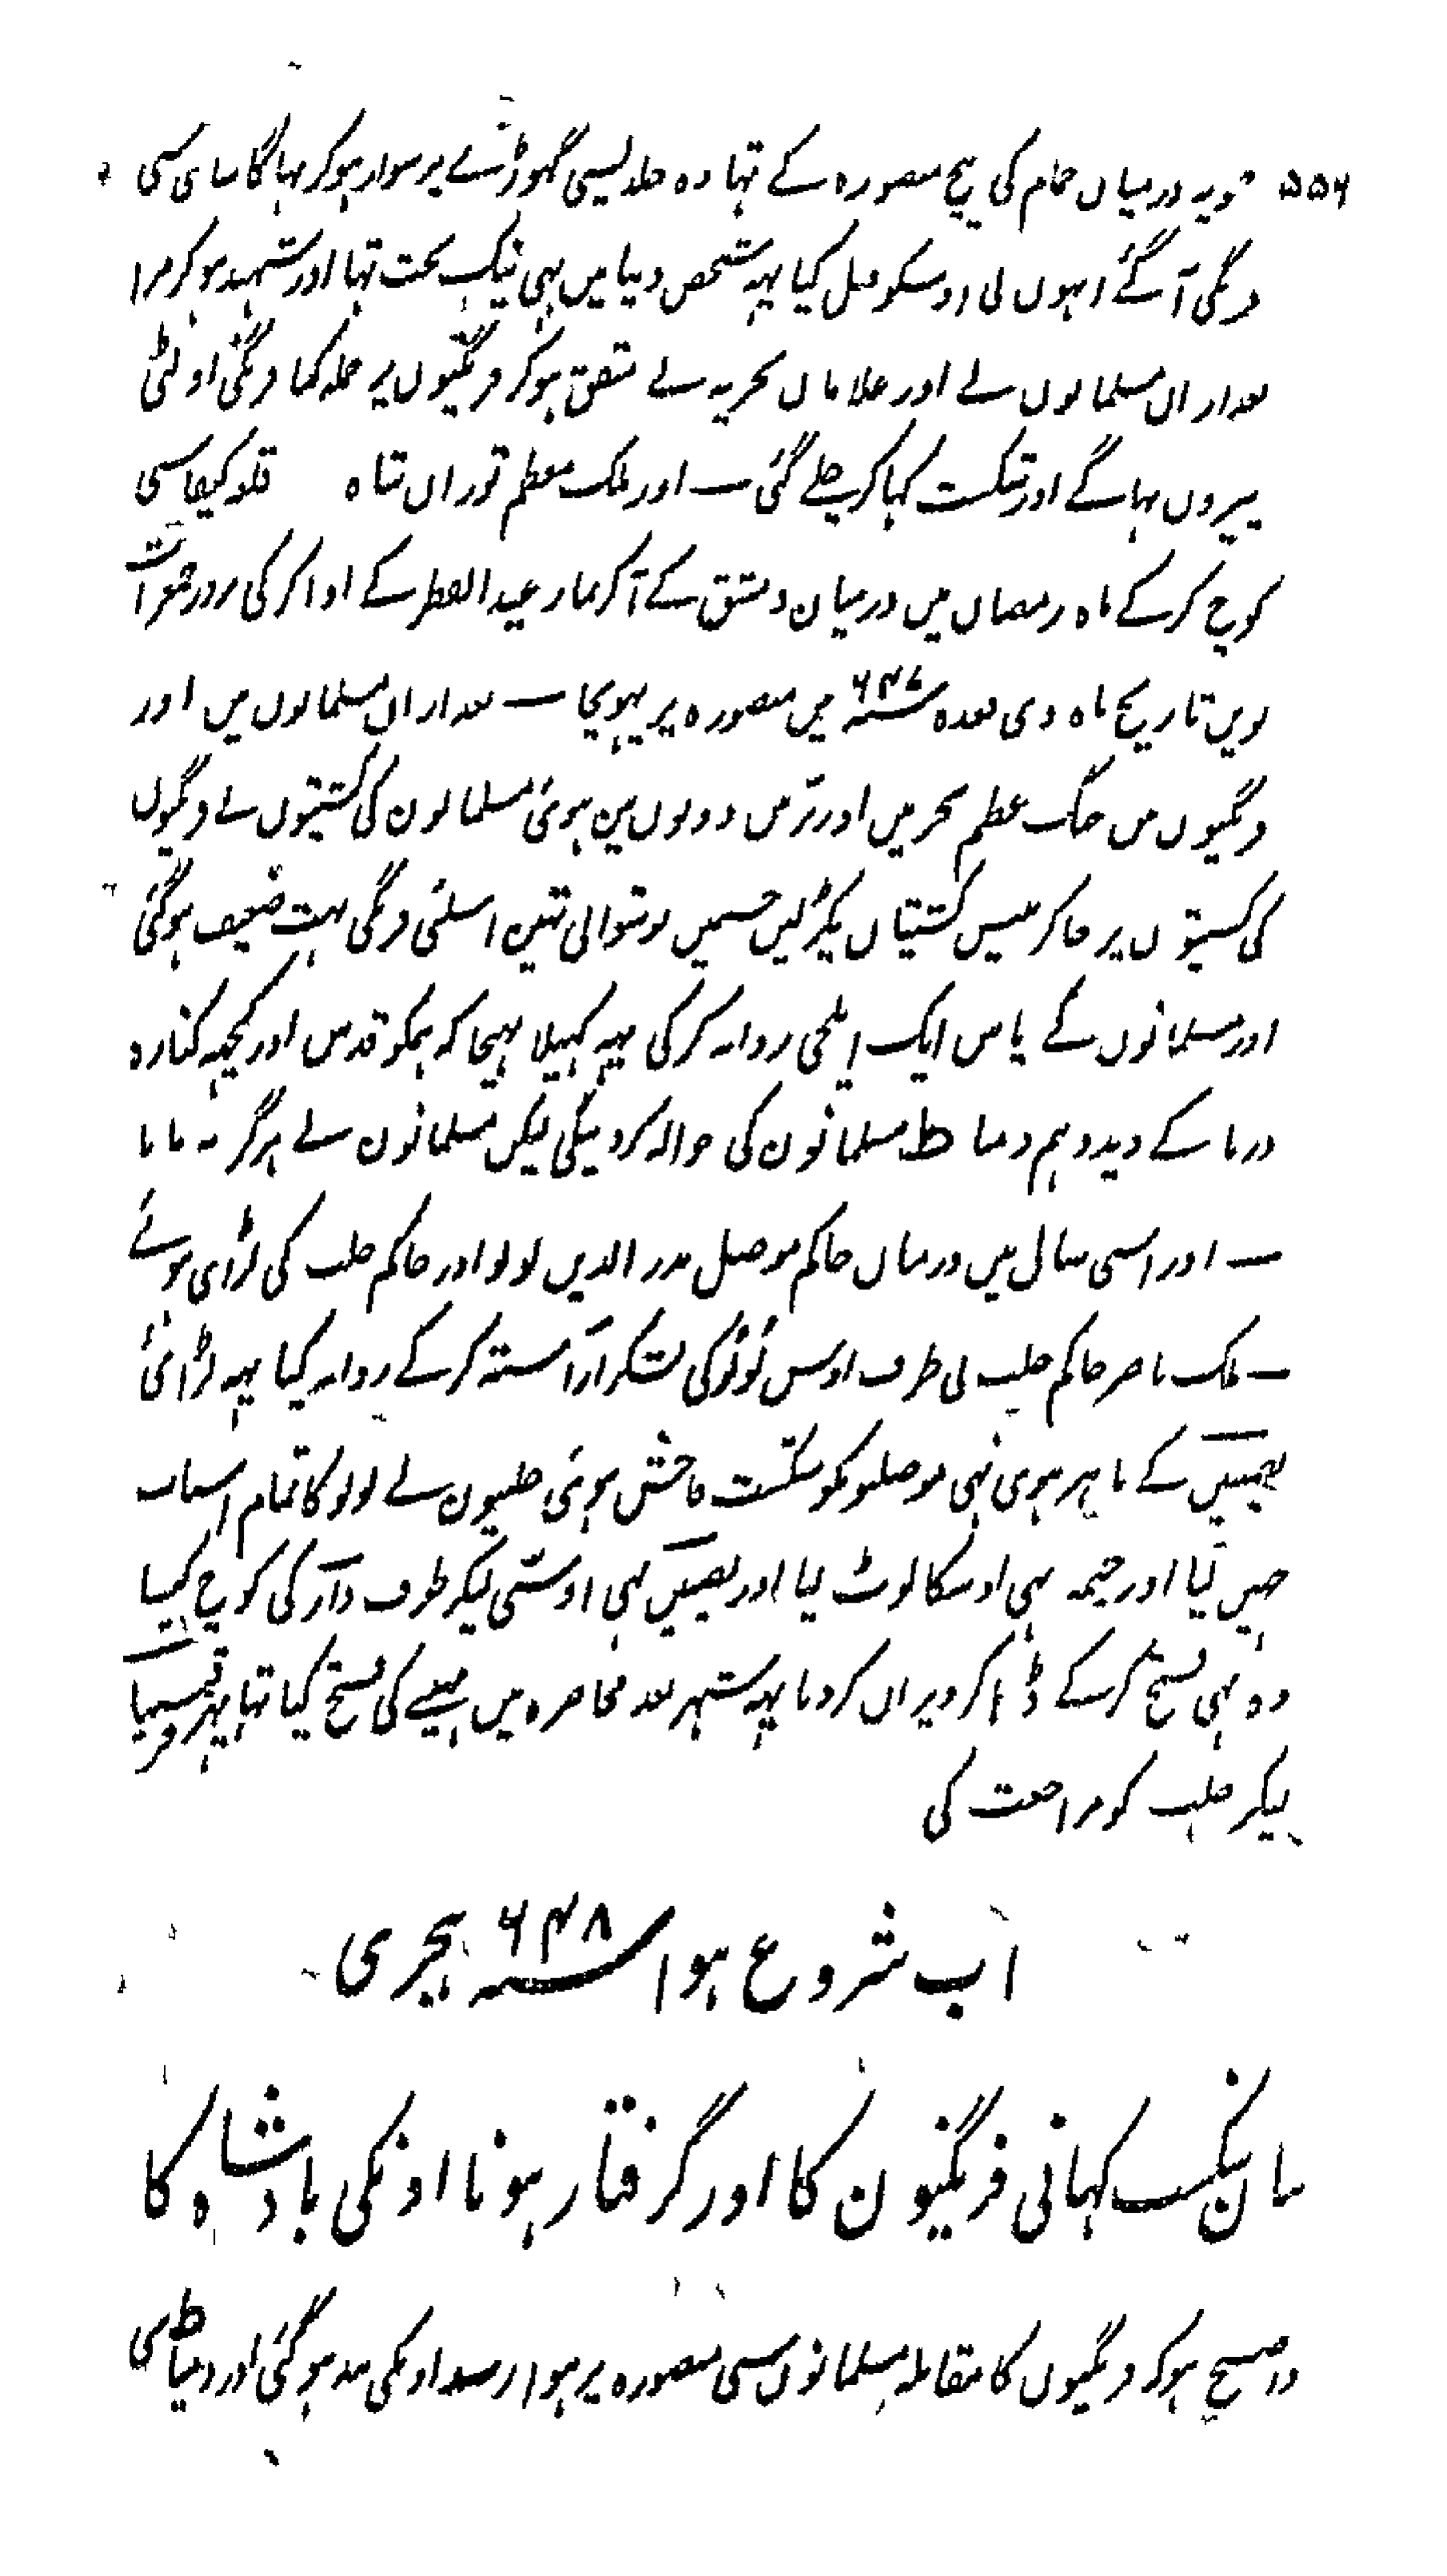 ۵۵۶ یہ درمیان حمام کی بیچ منصورہ کے تہا وہ جلدیسی گہوڑے پر سوار ہوکر بہاگا سامنی سی
فرنگی آگئے انہوں نی اوسکو قتل کیا یہہ شخص دنیا میں بہی نیک بخت تہا اور شہید ہوکر مرا
بعد ازاں مسلمانوں نے اور غلامان بحریہ نے متفق ہوکر فرنگیوں پر حملہ کیا فرنگی اولٹی
پیروں بہاگے اور شکست کہا کر چلے گئی ۔ اور ملک معظم توران شاہ قلعہ کیفا سی
کوچ کرکے ماہ رمضان میں درمیان دمشق کے آکر نماز عید الفطر کے ادا کر کی روز جمعرات
نویں تاریخ ماہ ذی قعدہ سنہ ۶۴۷ میں منصورہ پر پہونچا ۔ بعد ازاں مسلمانوں میں اور
فرنگیوں میں جنگ عظیم بحر میں اور بر میں دونوں مین ہوئی مسلمانون کی کشتیوں نے فرنگیوں
کی کشتیوں پر جاکر بیس کشتیاں پکڑ لیں جسمیں نو شوالی تہین اسلئی فرنگی بہت ضعیف ہوگئی
اور مسلمانوں کے پاس ایک ایلچی روانہ کر کی یہہ کہیلا بہیجا کہ ہمکو قدس اور کچہہ کنارہ
دریا کے دیدو ہم دمیاط مسلمانون کی حوالہ کر دینگی لیکن مسلمانون نے ہرگز نہ مانا
۔ اور اسی سال میں درمیان حاکم موصل بدر الدین لولو اور حاکم حلب کی لڑای ہوئے
۔ ملک ناصر حاکم حلب نی طرف اوس لولو کی لشکر آراستہ کرکے روانہ کیا یہہ لڑائی
نصیبین کے باہر ہوی تہی موصلونکو شکست فاحش ہوئی حلبیون نے لولو کا تمام اسباب
چہین لیا اور خیمہ بہی اوسکا لوٹ لیا اور نصیبین بہی اوسسی لیکر طرف دارا کی کوچ کیا
وہ بہی فتح کرکے ڈہا کر ویران کردیا یہہ شہر بعد محاصرہ تین مہینے کی فتح کیا تہا پہر قرقیسیا
لیکر حلب کو مراجعت کی
اب شروع ہوا سنہ ۶۴۸ ہجری
بیان شکست کہانی فرنگیون کا اور گرفتار ہونا اونکی بادشاہ کا
واضح ہو کہ فرنگیوں کا مقابلہ مسلمانوں سی منصورہ پر ہوا رسد اونکی بند ہوگئی اور دمیاط سی